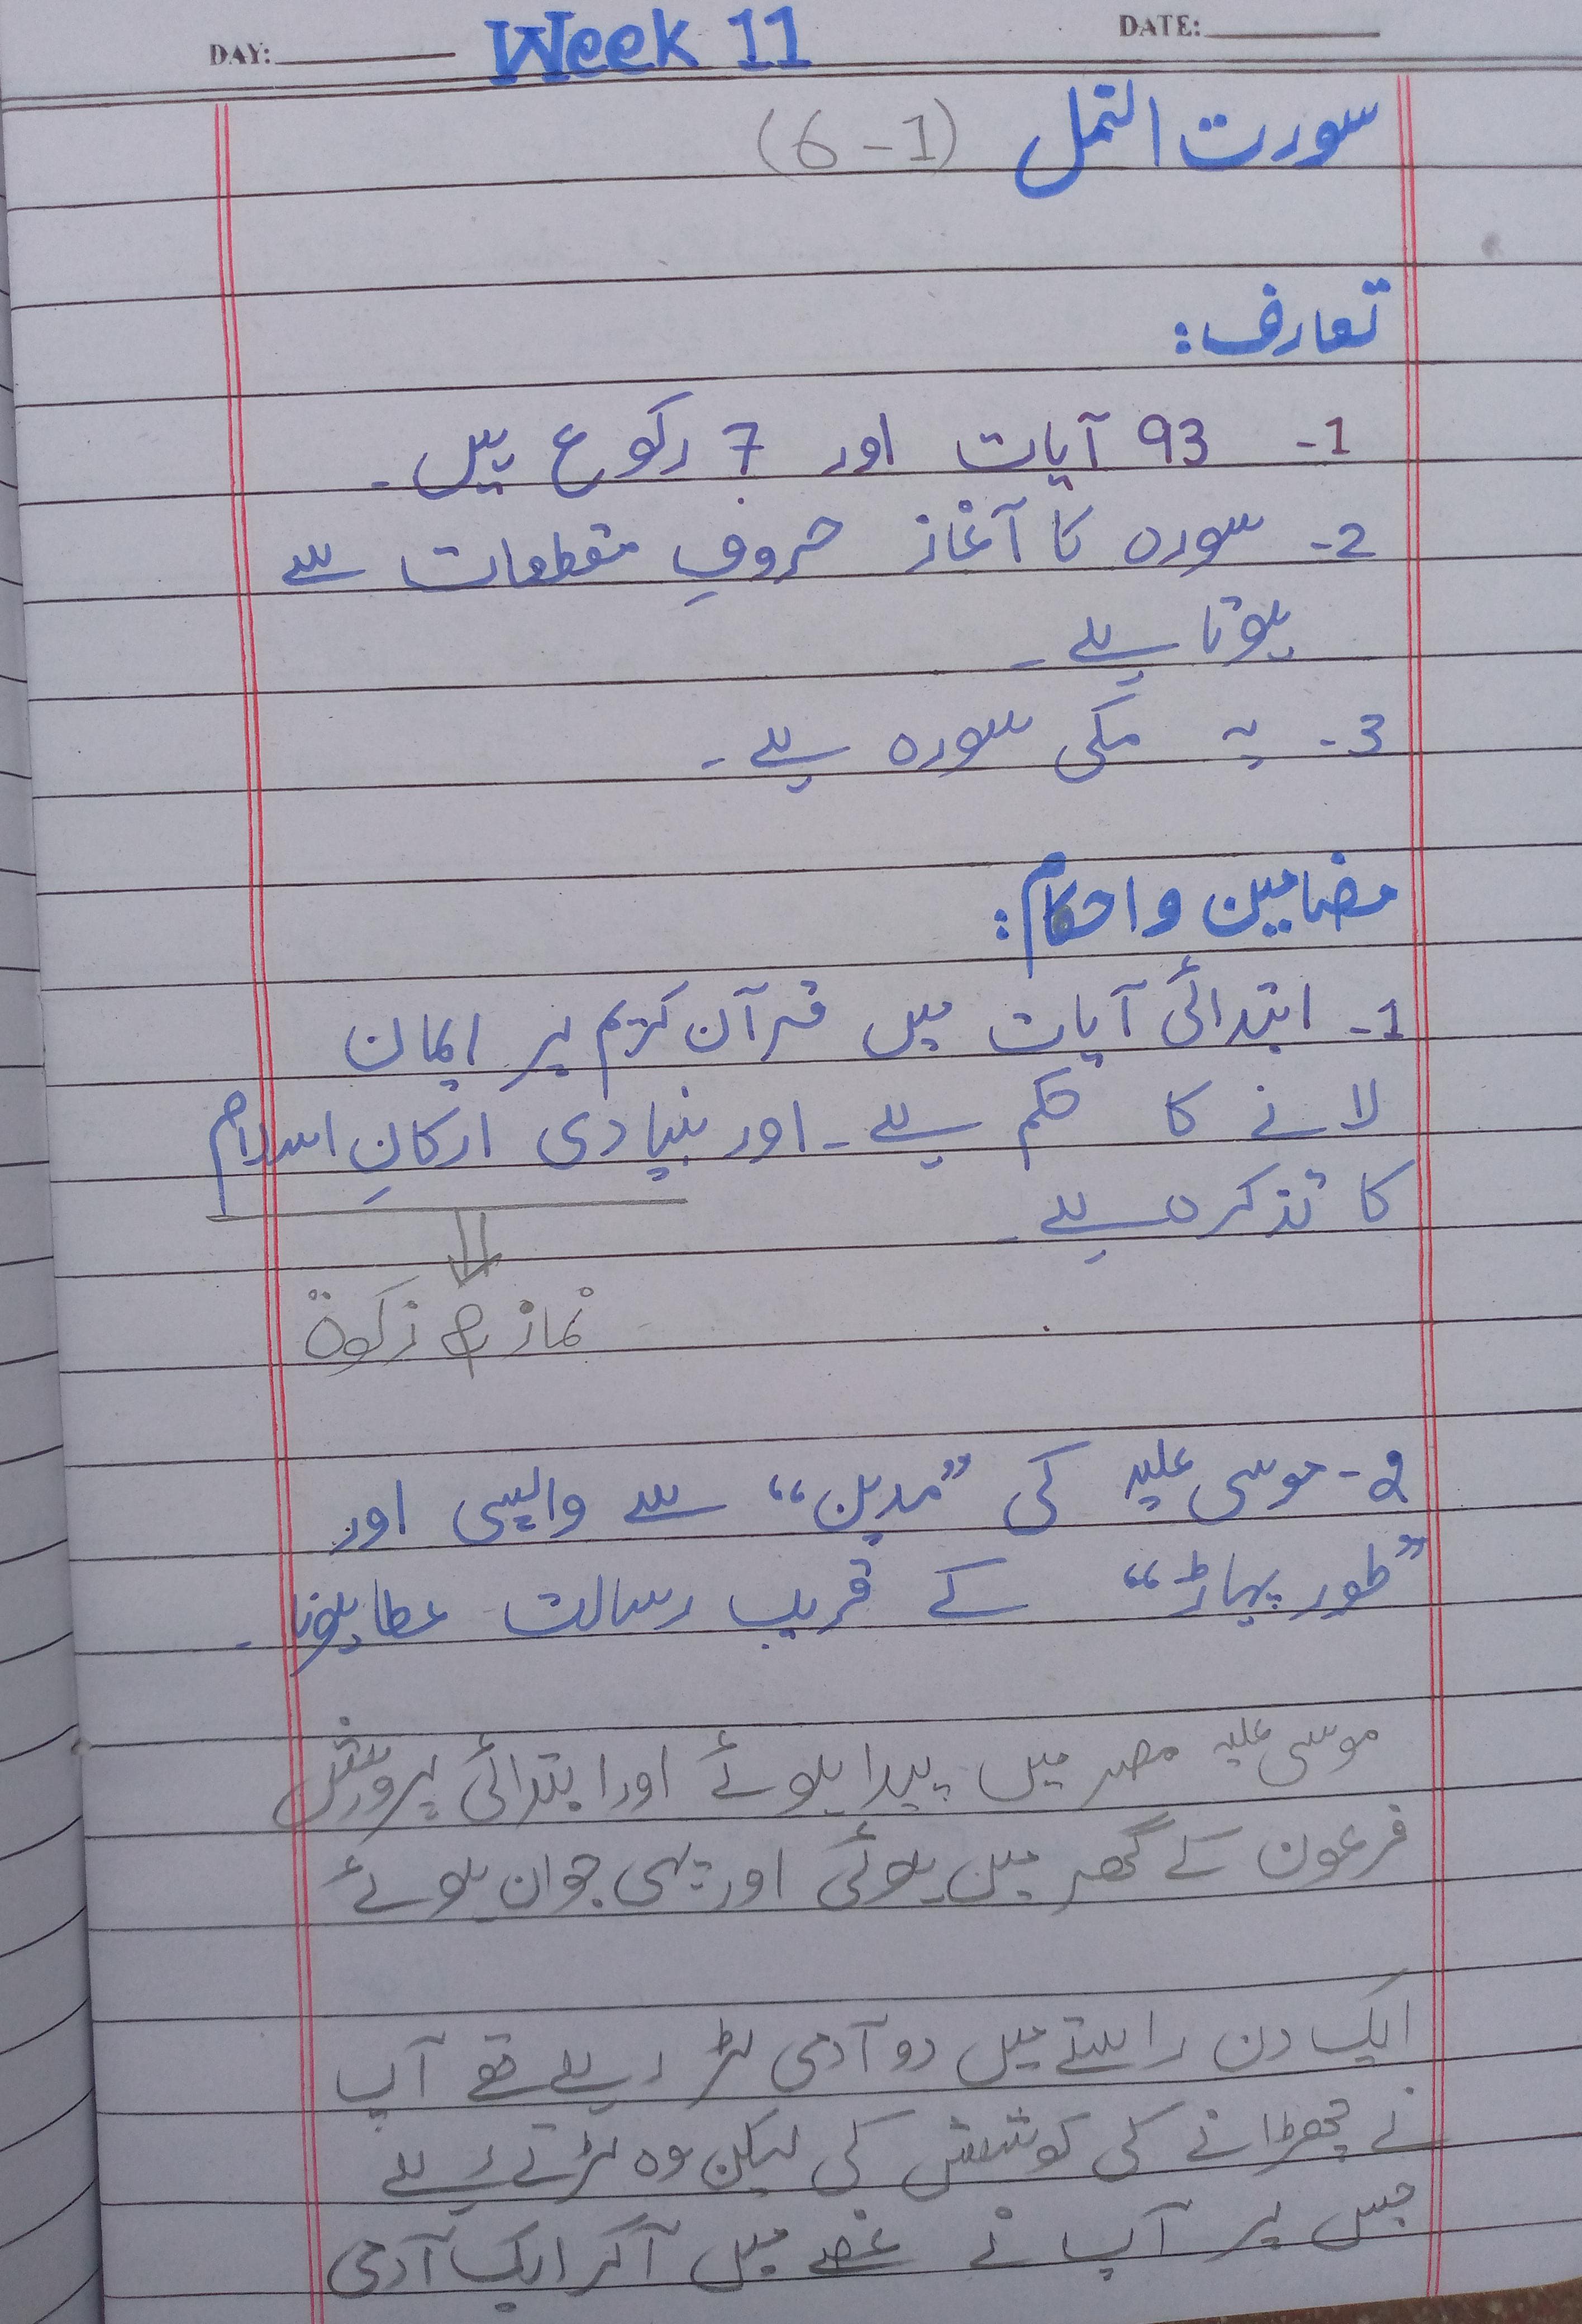 DAY: Week 11 DATE:
سورت النمل (1-6)
تعارف:
1- 93 آیات اور 7 رکوع ہیں۔
2- سورہ کا آغاز حروفِ مقطعات سے
ہوتا ہے۔
3- یہ مکی سورہ ہے۔
مضامین و احکام:
1- ابتدائی آیات میں قرآن کریم پر ایمان
لانے کا حکم ہے۔ اور بنیادی ارکانِ اسلام
کا تذکرہ ہے۔
نماز & زکوۃ
2- موسی علیہ کی ”مدین“ سے واپسی اور
”طور پہاڑ“ کے قریب رسالت عطا ہونا۔
موسی علیہ مصر میں پیدا ہوئے اور ابتدائی پرورش
فرعون کے گھر میں ہوئی اور یہی جوان ہوئے
ایک دن راستے میں دو آدمی لڑ رہے تھے آپ
نے چھڑانے کی کوشش کی لیکن وہ لڑتے رہے
جس پر آپ نے غصے میں آکر ایک آدمی